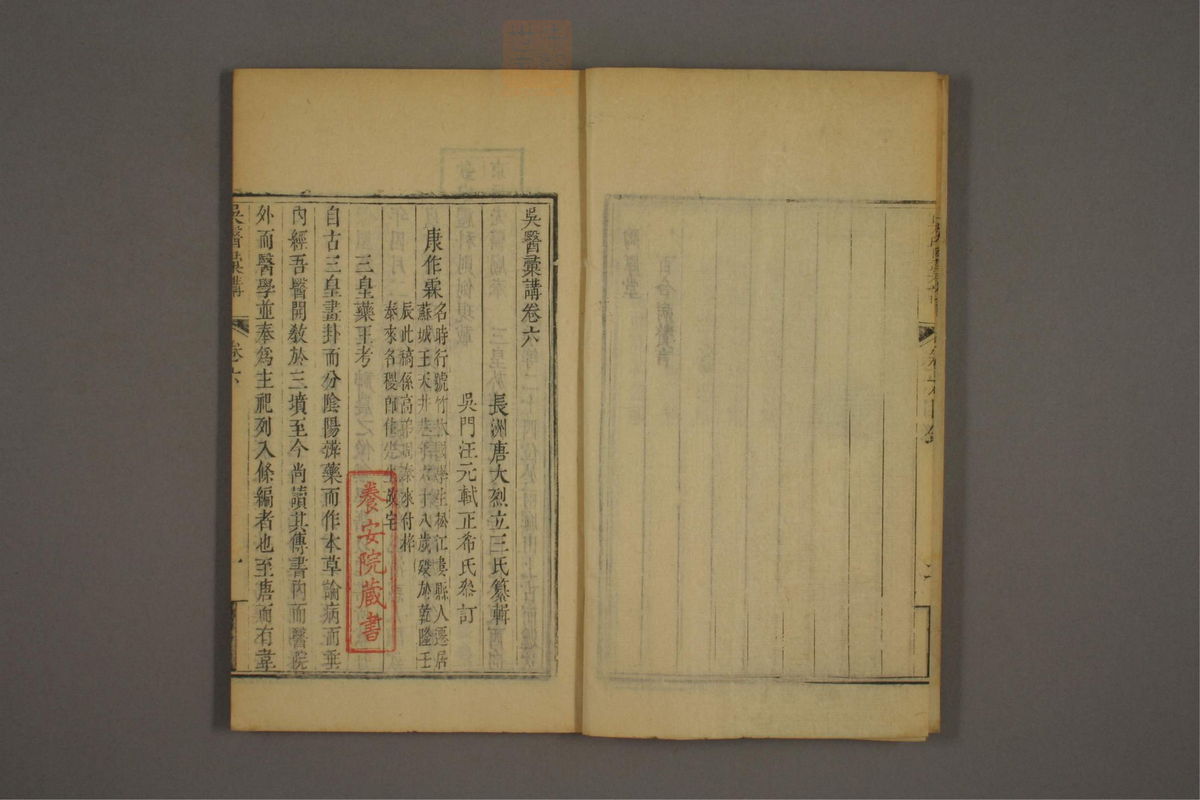 吳醫彙講卷六
長洲唐大烈立三氏纂輯
吳門汪元軾正希氏叅訂
康作霖
名時行號竹 國學生松江婁縣人遷居
蘇城王天井巷 八歲歿於乾隆壬
辰此稿係高弟周泰來付梓
泰來名 先生故宅
三皇藥王考
自古三皇畫卦而分陰陽辨藥而作本草論病而垂
內經吾醫開敎於三墳至今尚讀其傳書內而醫院
外而醫學並奉爲主祀列入條編者也至唐而有韋
吳醫彙講
卷六
一
養安院藏書